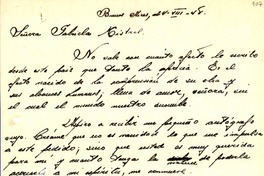 107
Buenos Aires, 24-VIII-48.
Señora Gabriela Mistral.
No sale con cuanto afecto le escribo
desde este país que tanto la aprecia. Es el
efecto nacido de la comprensión de su obra y
sus ideales humanos, llena de amor, señora, sin
el cual el mundo nuestro
Aspiro a recibir un pequeño autógrafo
suyo. Créame que no es vanidad lo que me impulsa
a este pedido, sino que usted es muy querida
para mí y cuanto tenga la de poderla
acercar a mi espíritu, me conmueve.